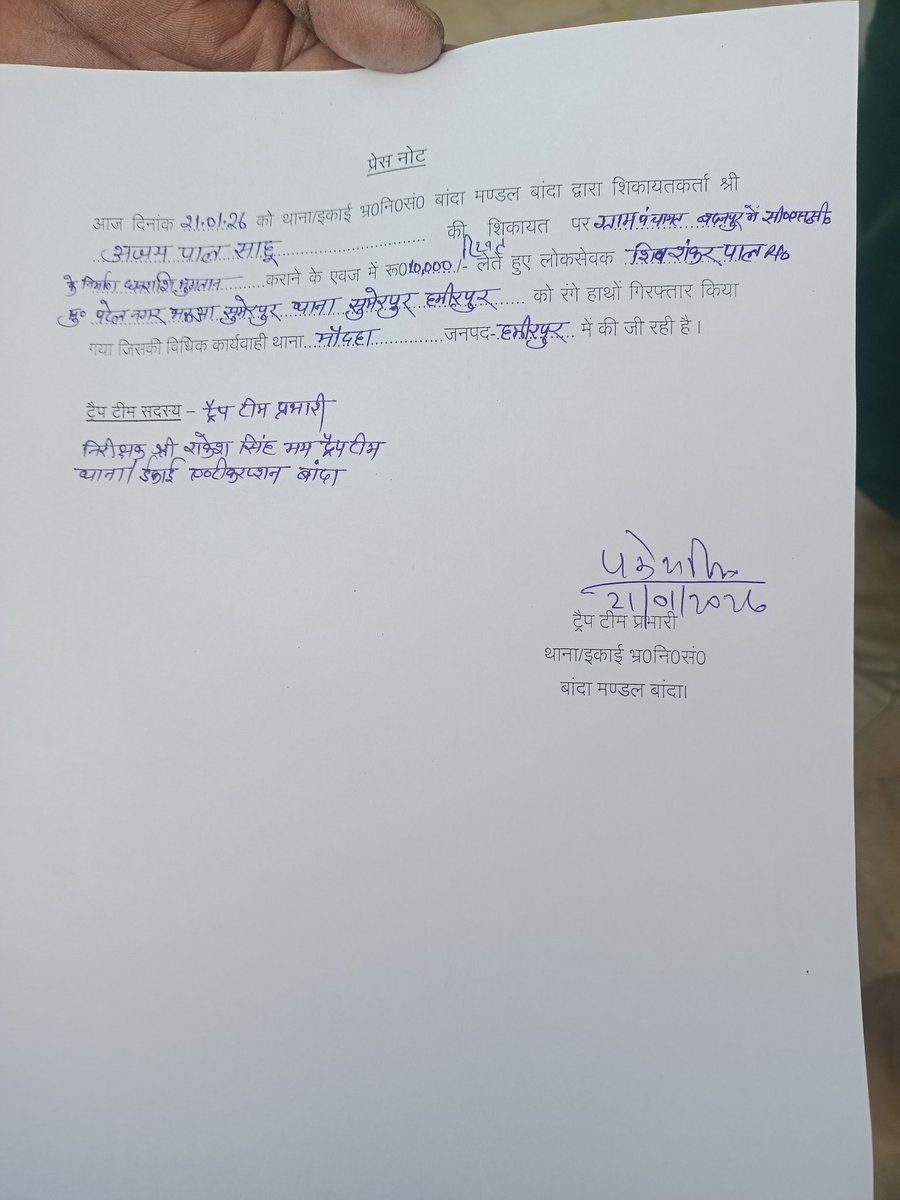 प्रेस नोट
आज दिनांक 21.01.26 को थाना/इकाई भ्र0नि0सं0 बांदा मण्डल बांदा द्वारा शिकायतकर्ता श्री
अजय पाल साहू की शिकायत पर ग्राम पंचायत बदनपुर में सी०एस०सी०
के निर्माण धनराशि भुगतान कराने के एवज में रू010,000/- रिश्वत लेते हुए लोकसेवक शिव शंकर पाल R/o
मु० पटेल नगर भरुआ सुमेरपुर थाना सुमेरपुर हमीरपुर को रंगे हाथों गिरफ्तार किया
गया जिसकी विधिक कार्यवाही थाना मौदहा जनपद- हमीरपुर में की जी रही है।
ट्रैप टीम सदस्य – ट्रैप टीम प्रभारी
निरीक्षक श्री राकेश सिंह मय ट्रैप टीम
थाना/ईकाई एण्टीकरप्शन बांदा
21/01/2026
ट्रैप टीम प्रभारी
थाना/इकाई भ्र0नि0सं0
बांदा मण्डल बांदा।